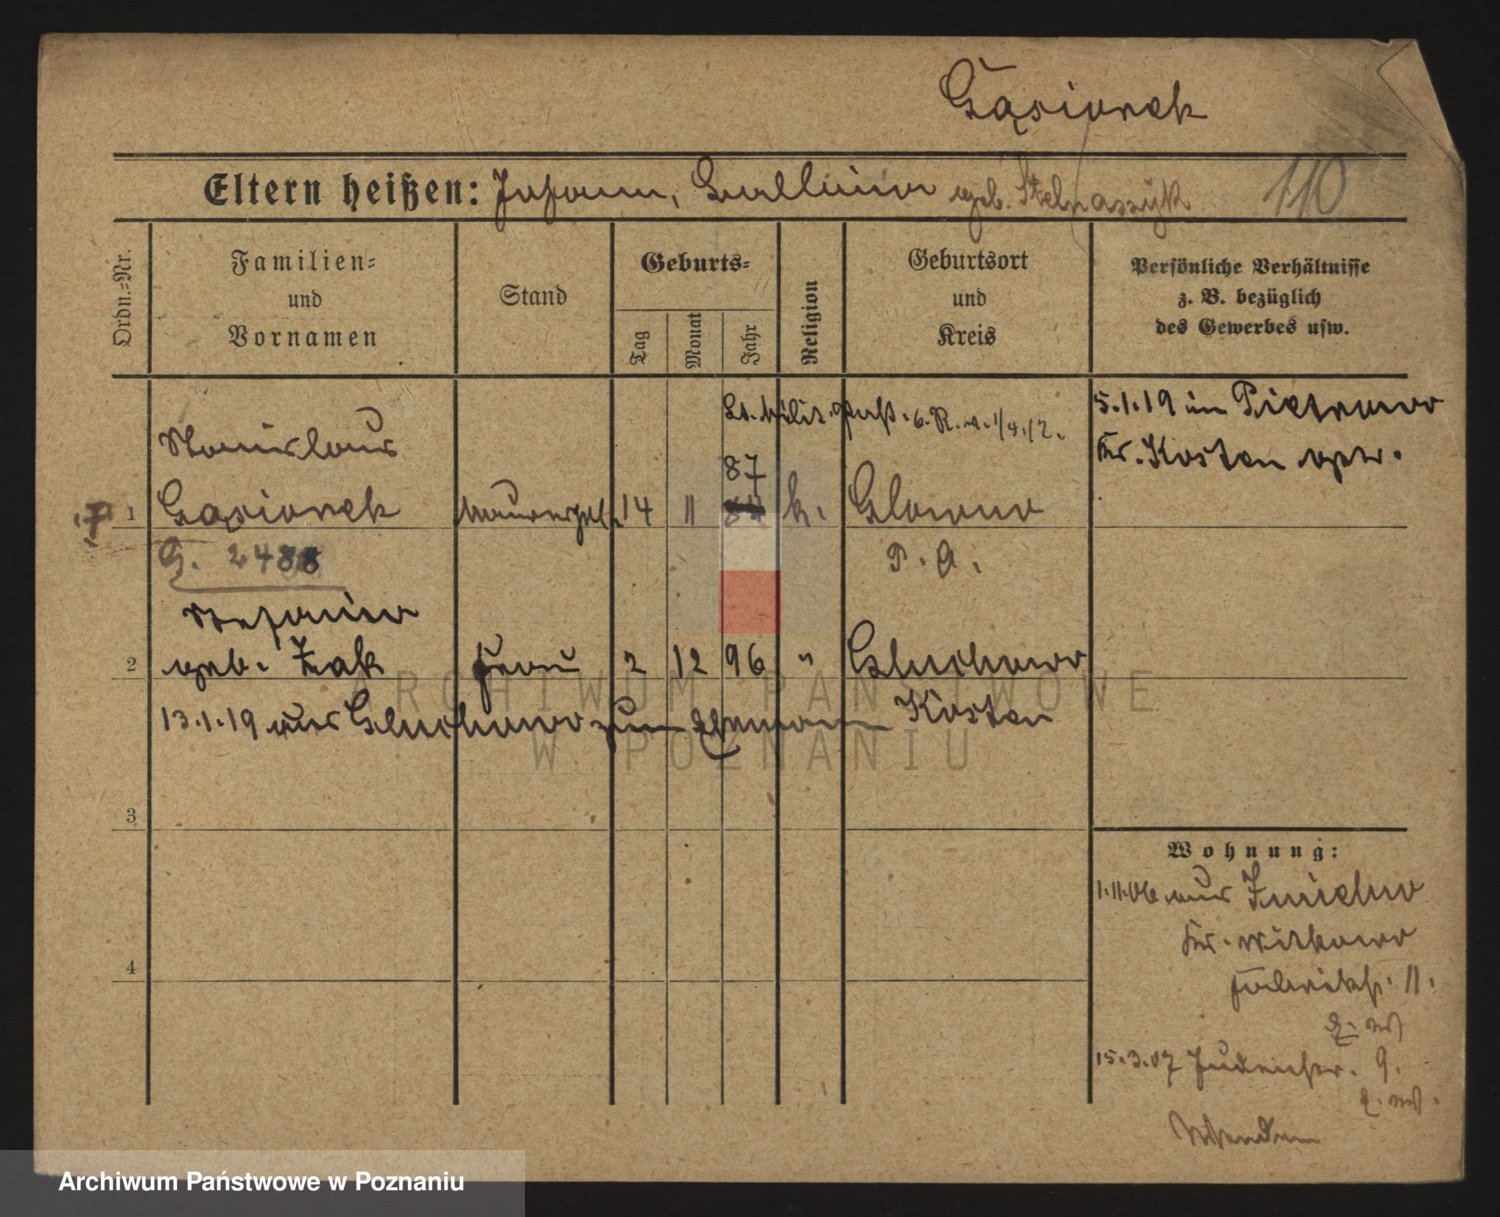 Gąsiorek
Eltern heißen: Johann, Pauline geb. Stelmaszyk
110
Ordn.-Nr.
Familien-
und
Vornamen
Stand
Geburts-
Tag
Monat
Jahr
Religion
Geburtsort
und
Kreis
Persönliche Verhältnisse
z. B. bezüglich
des Gewerbes usw.
Lt. Milit. Paß.
5.1.19 in Pietrowo
Kr. Kosten
Stanislaus
87
1 Gąsiorek 14 11 k. Glowno
G. 2488
P. O.
Stefania
2 geb. Żak Frau 2 12 96 " Gluchowo
13.1.19 aus Gluchowo zum Ehemann Kosten
3
4
Wohnung:
1.11.06 aus
Kr. Witkowo
Fabrikstr. 11.
15.3.07 9.
ARCHIWUM PAŃSTWOWE
W POZNANIU
Archiwum Państwowe w Poznaniu